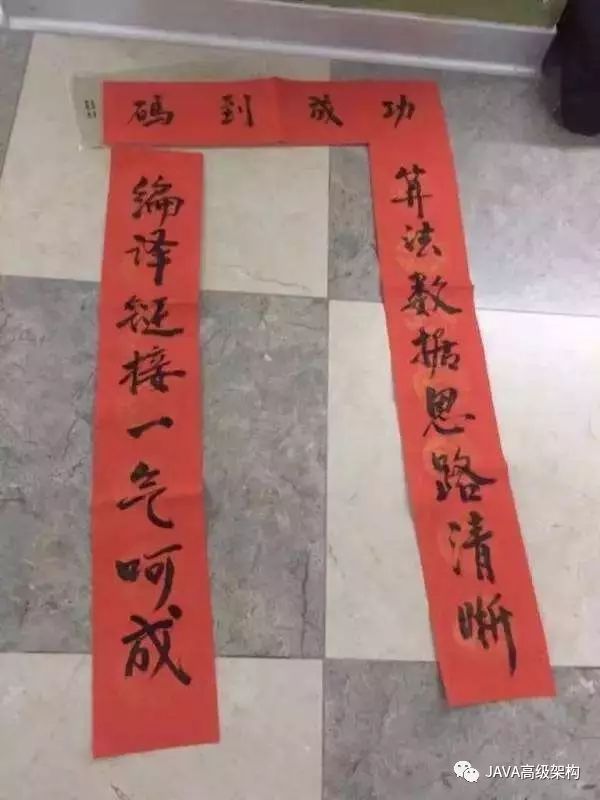 码到成功
算法数据思路清晰
编译链接一气呵成
JAVA高级架构